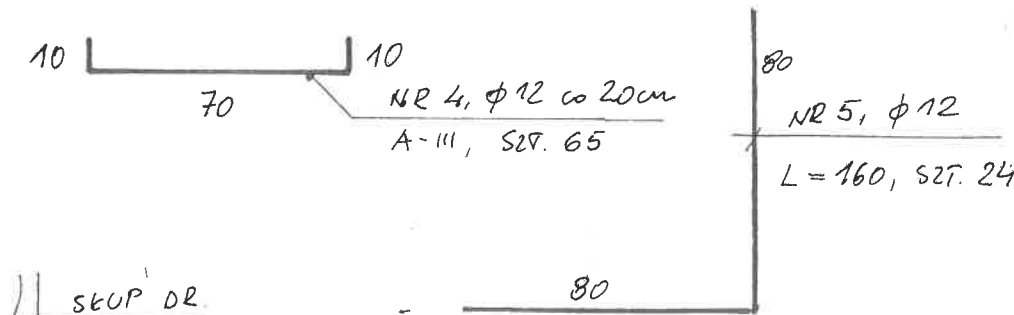 10
10
70
NR 4, φ 12 co 20cm
A-III, SZT. 65
80
NR 5, φ 12
L = 160, SZT. 24
80
SŁUP DR